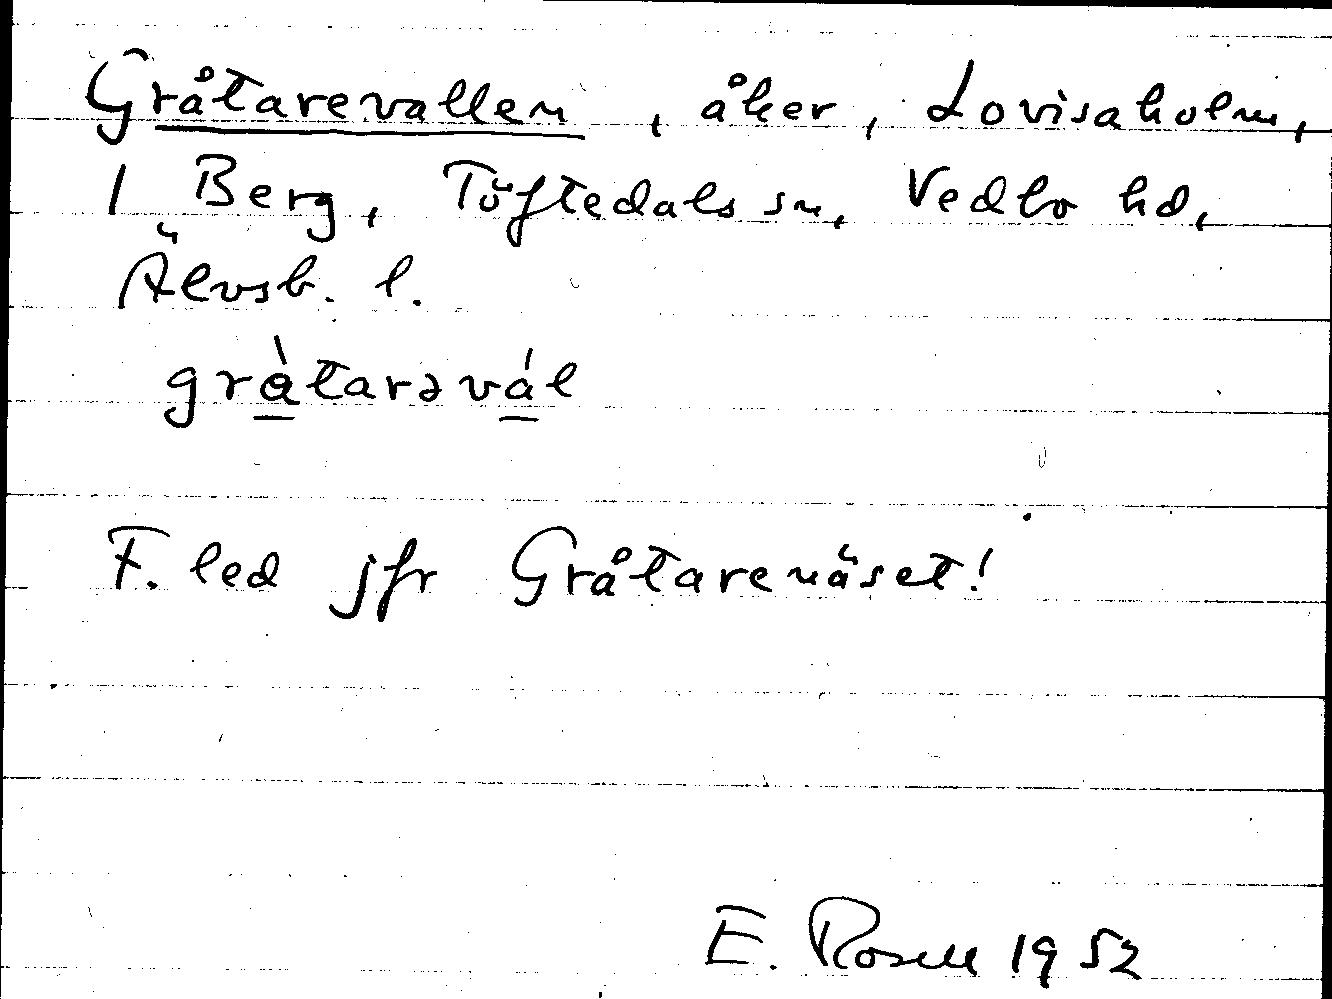 Gråtarevallen, åker, Lovisaholm,
1 Berg, Töftedals sn, Vedbo hd,
Älvsb. l.
gràtarəvál
F. led jfr Gråtarenäset!
E. Rosell 1952